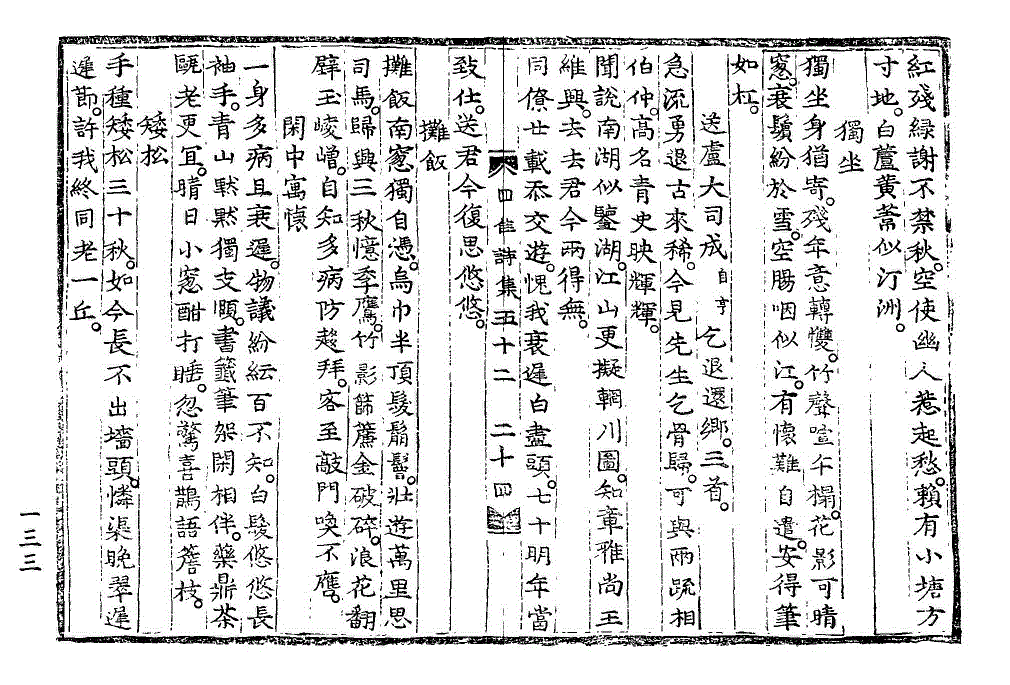 紅殘綠謝不禁秋。空使幽人惹起愁。賴有小塘方
寸地。白蘆黃蓼似汀洲。
獨坐
獨坐身猶寄。殘年意轉慵。竹聲喧午榻。花影可晴
窓。衰鬢紛於雪。空腸咽似江。有懷難自遣。安得筆
如杠。
送盧大司成 自亨 乞退還鄕。三首。
急流勇退古來稀。今見先生乞骨歸。可與兩疏相
伯仲。高名靑史映輝輝。
聞說南湖似鑒湖。江山更擬輞川圖。知章雅尚王
維興。去去君今兩得無。
同僚廿載忝交遊。愧我衰遲白盡頭。七十明年當
致仕。送君今復思悠悠。
四佳詩集五十二 二十四
攤飯
攤飯南窓獨自憑。烏巾半頂髮鬅鬙。壯遊萬里思
司馬。歸興三秋憶季鷹。竹影篩簾金破碎。浪花翻
壁玉崚嶒。自知多病防趨拜。客至敲門喚不譍。
閑中寓懷
一身多病且衰遲。物議紛紜百不知。白髮悠悠長
袖手。靑山默默獨支頤。書籤筆架閑相伴。藥鼎茶
甌老更宜。晴日小窓酣打睡。忽驚喜鵲語簷枝。
矮松
手種矮松三十秋。如今長不出墻頭。憐渠晚翠遲
遲節。許我終同老一丘。
一三三